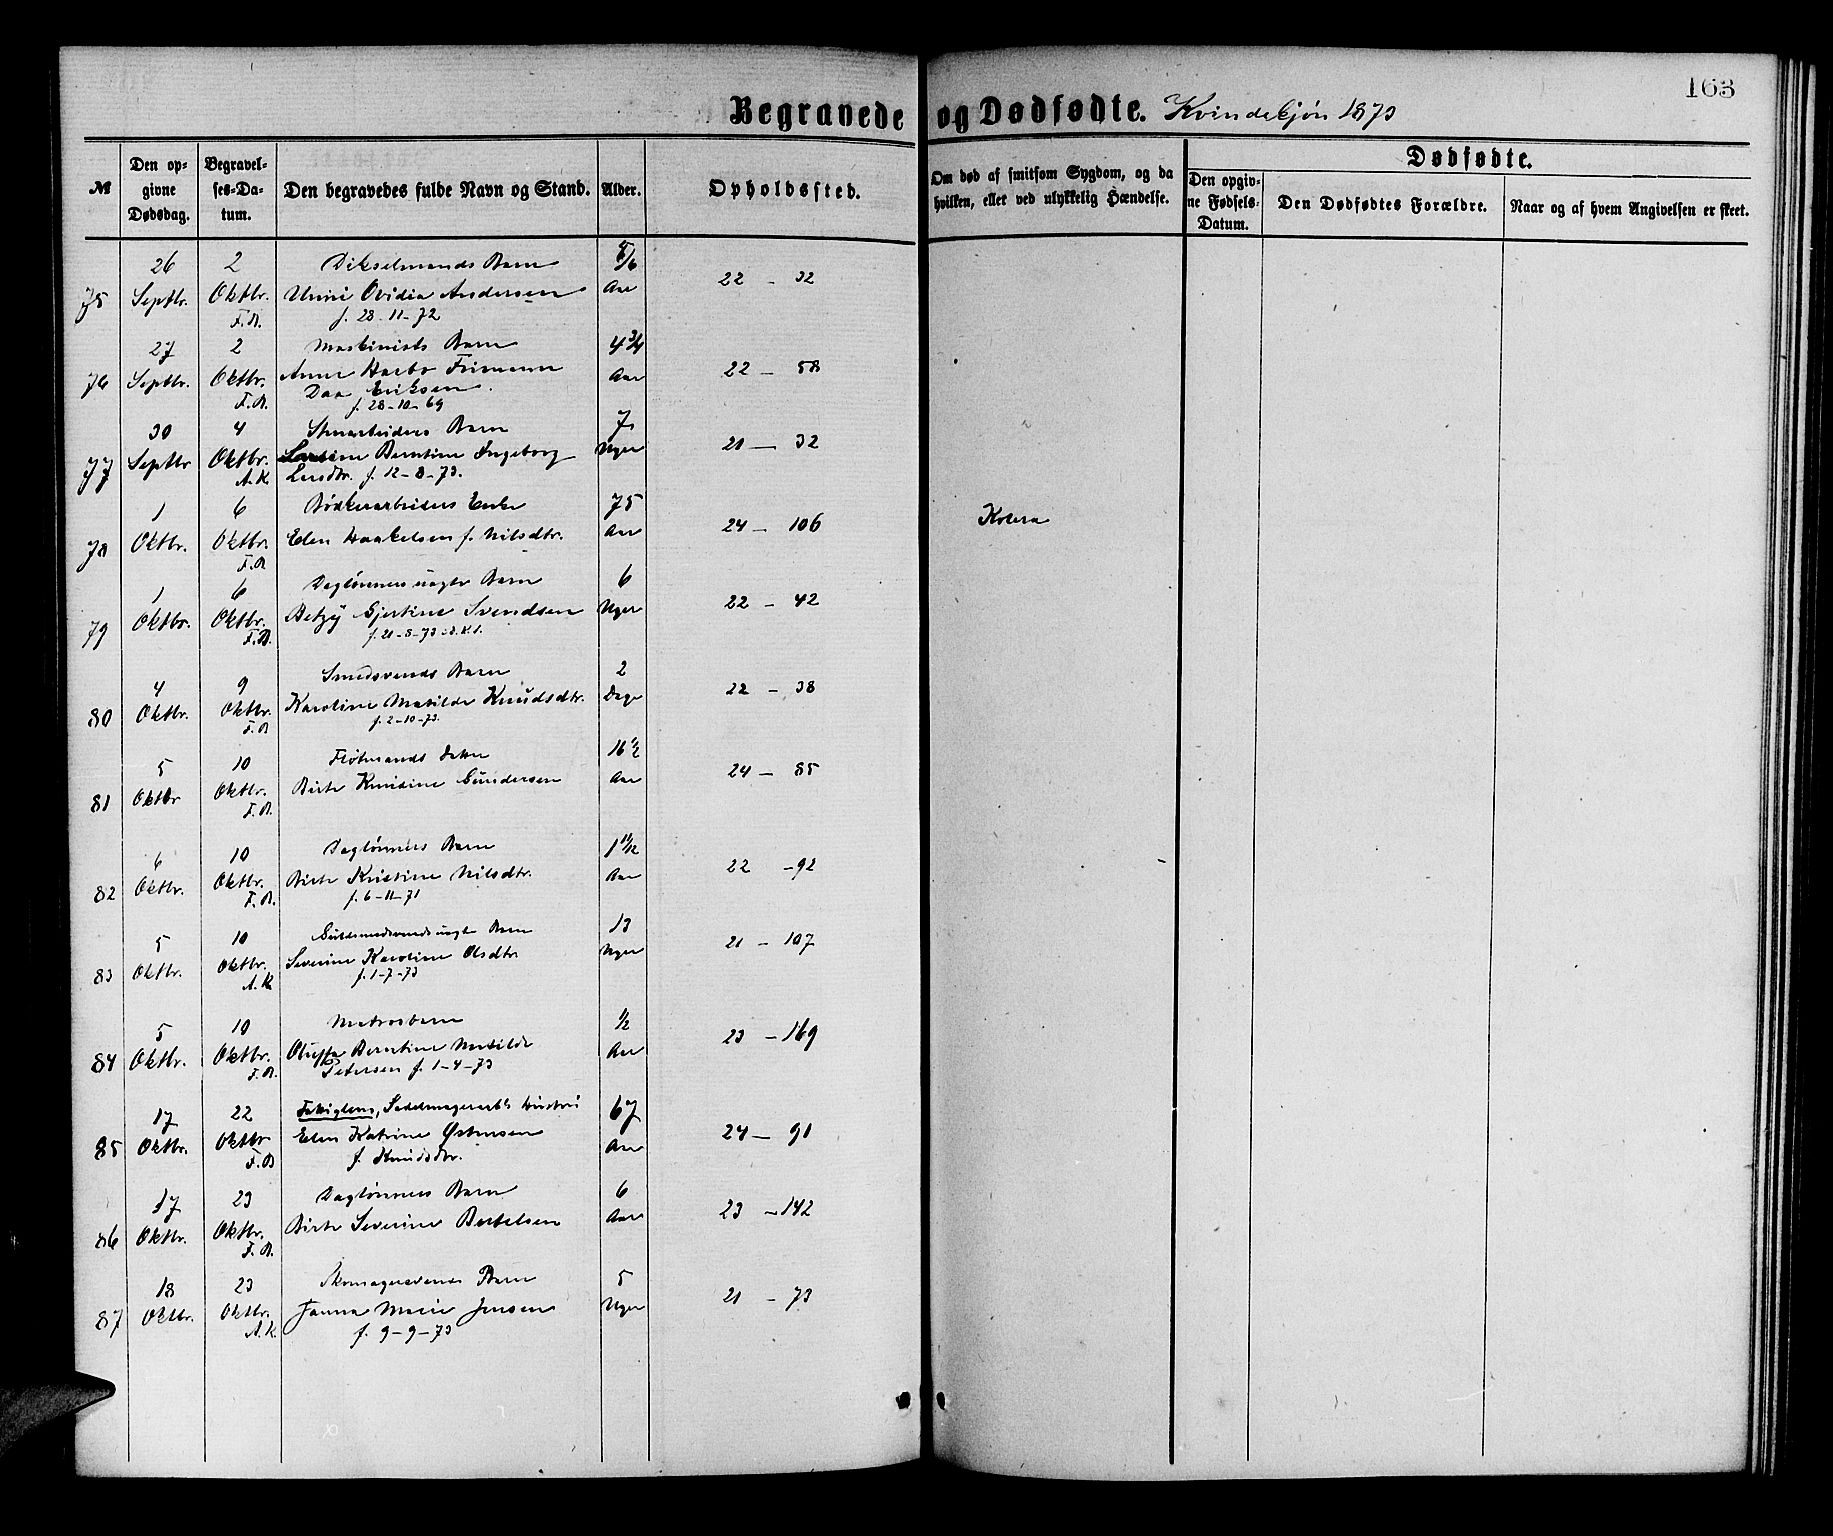 163
Begravede og Dødfødte. Kvindekjøn 1873
№
Den op-
givne
Dødsdag.
Begravel-
ses-Da-
tum.
Den begravedes fulde Navn og Stand.
Alder.
Opholdssted.
Om død af smitsom Sygdom, og da
hvilken, eller ved ulykkelig Hændelse.
Dødfødte.
Den opgiv-
ne Fødsels-
Datum.
Den Dødfødtes Forældre.
Naar og af hvem Angivelsen er skeet.
26 2 Barn 5/6
75 Septbr. Oktbr. Ovidia Andersen Aar 22 - 32
F.B. f. 28-11-72
27 2 Maskinists Barn 4 3/4
76 Septbr. Oktbr. Anne Aar 22 - 58
F.B. Daa Eriksen.
f. 28-10-69
30 4 Barn 7
77 Septbr Oktbr. Berntine Ingeborg Uger 21 - 32
A.K. Larsdtr. f. 12-8-73.
1 6 Bødkerarbeiders Enke 75
78 Oktbr. Oktbr. Elen Haakelsen f. Nilsdtr. Aar 24 - 106 Kolera
F.B.
1 6 Daglønners uægte Barn 6
79 Oktbr. Oktbr. Betzy Gjertine Svendsen Uger 22 - 42
F.B. f. 21-8-73
4 9 Smedsvends Barn 2
80 Oktbr. Oktbr. Karoline Matilde Knudsdtr. Dage 22 - 38
F.B. f. 2-10-73.
5 10 Datter 16 1/2
81 Oktbr Oktbr. Birte Gundersen Aar 24 - 85
F.B.
6 10 Daglønners Barn 1 11/12
82 Oktbr. Oktbr. Birte Kristine Nilsdtr. Aar 22 - 92
F.B. f. 6-11-71
5 10 Guldsmedsvends uægte Barn 13
83 Oktbr. Oktbr. Severine Karoline Olsdtr Uger 21 - 107
A.K. f. 1-7-73
5 10 Matrosbarn 1/2
84 Oktbr. Oktbr. Oluffa Berntine Matilde Aar 23 - 169
F.B. Petersen f. 1-4-73
17 22 Fattiglem, Sadelmagerarb's Hustru 67
85 Oktbr. Oktbr Elen Katrine Østensen Aar 24 - 91
F.B f. Knudsdtr.
17 23 Daglønners Barn 6
86 Oktbr. Oktbr. Birte Severine Bertelsen Aar 23 - 142
F.B.
18 23 Skomagersvends Barn 5
87 Oktbr. Oktbr. Janna Marie Jensen Uger 21 - 73
A.K. f. 9-9-73